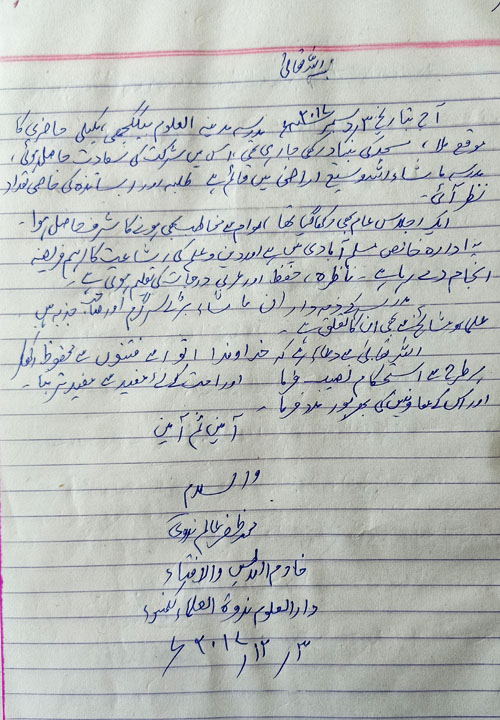 باسمہ تعالیٰ
آج بتاریخ ۳ دسمبر ۲۰۱۷ء مدرسہ مدینۃ العلوم میں پہلی حاضری کا
موقع ملا، مسجد کی بنیاد رکھی جا رہی تھی، اس میں شرکت کی سعادت حاصل ہوئی،
مدرسہ ماشاء اللہ وسیع اراضی میں قائم ہے طلبہ اور اساتذہ کی خاصی تعداد
نظر آئی۔
ایک اجلاس عام بھی رکھا گیا تھا عوام سے مخاطب بھی ہونے کا شرف حاصل ہوا۔
یہ ادارہ خالص مسلم آبادی میں ہے اور دین و علم کی اشاعت کا اہم فریضہ
انجام دے رہا ہے۔ ناظرہ، حفظ اور عربی درجات کی تعلیم ہوتی ہے۔
مدرسہ کے ذمہ داران ماشاء اللہ بڑے سرگرم اور صاحب جذبہ ہیں
علماء و مشائخ سے بھی ان کا تعلق ہے۔
اللہ تعالیٰ سے دعاء ہے کہ خداوندا تو اسے فتنوں سے محفوظ رکھ
ہر طرح سے استحکام نصیب فرما اور امت کے لئے مفید سے مفید تر بنا۔
اور اس کے معاونین کی بھرپور مدد فرما۔
آمین ثم آمین
والسلام
محمد ظفر عالم ندوی
خادم التدریس والافتاء
دارالعلوم ندوۃ العلماء لکھنؤ
۳/۱۲/۲۰۱۷ء